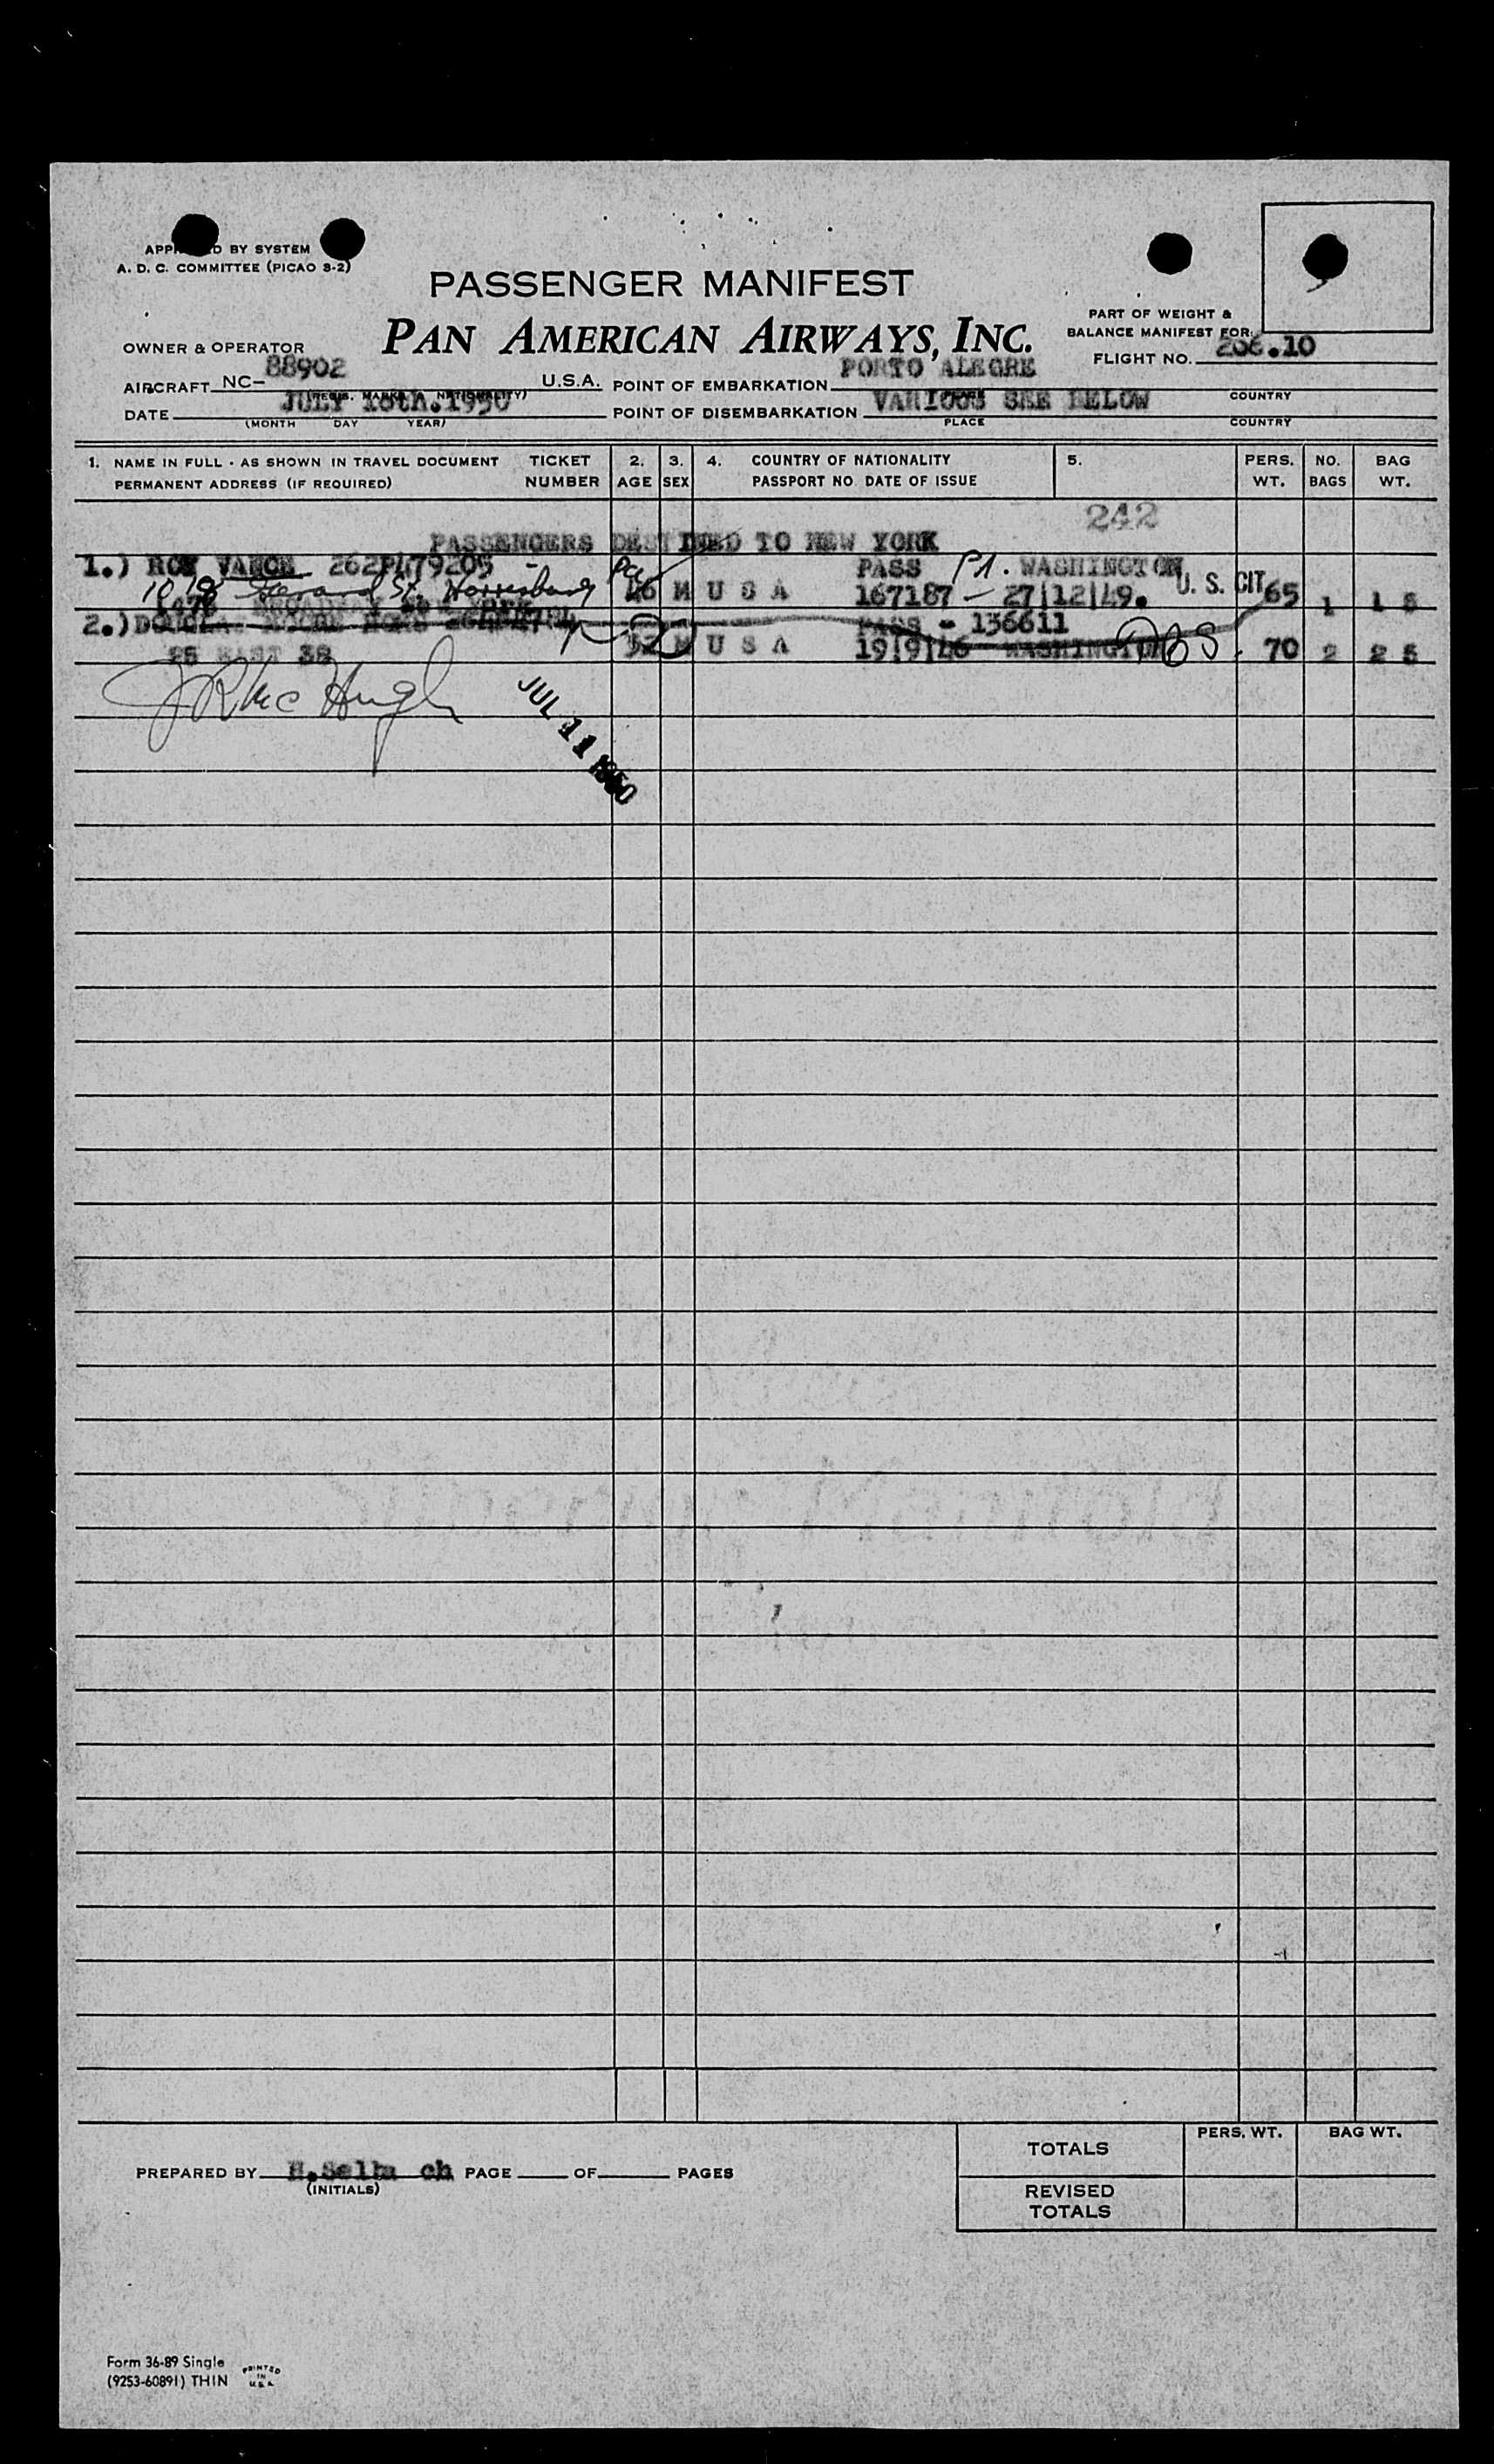 BY SYSTEM
A. D. C. COMMITTEE (PICAO S-2)
PASSENGER MANIFEST
PAN AMERICAN AIRWAYS, INC.
PART OF WEIGHT &
BALANCE MANIFEST FOR:
FLIGHT NO. 206.10
OWNER & OPERATOR
AIRCRAFT NC- 88902 U.S.A. POINT OF EMBARKATION PORTO ALEGRE
(REGIS. MARKS & NATIONALITY) PLACE COUNTRY
DATE JULY 10th.1950 POINT OF DISEMBARKATION VARIOUS SEE BELOW
(MONTH DAY YEAR) PLACE COUNTRY
1. NAME IN FULL - AS SHOWN IN TRAVEL DOCUMENT TICKET 2. 3. 4. COUNTRY OF NATIONALITY 5. PERS. NO. BAG
PERMANENT ADDRESS (IF REQUIRED) NUMBER AGE SEX PASSPORT NO. DATE OF ISSUE WT. BAGS WT.
242
PASSENGERS DESTINED TO NEW YORK
1.) ROY VANCE 262P479205 - PASS P1. WASHINGTON
St. Harrisburg Pa 46 M U S A 167187 - 27|12|49. U. S. CIT 65 1 1 5
BROADWAY NEW YORK
2.) DOUGLAS MOORE PASS - 136611
25 EAST 38 M U S A 19|9|46 WASHINGTON 70 2 2 5
J R McHugh
JUL 11 1950
TOTALS PERS. WT. BAG WT.
PREPARED BY H.Selba ch PAGE OF PAGES
(INITIALS)
REVISED
TOTALS
Form 36-89 Single
(9253-60891) THIN
PRINTED
IN
U.S.A.